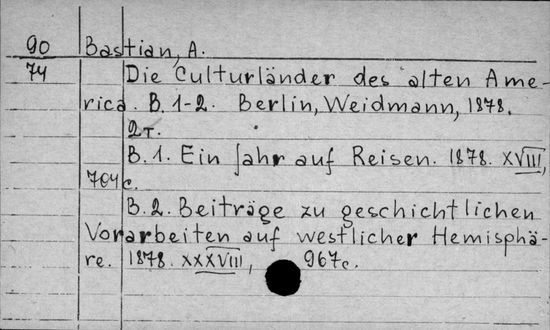 90 Bastian, A.
74 Die Culturländer des alten Ame-
rica. B. 1-2. Berlin, Weidmann, 1878.
2т.
B. 1. Ein Jahr auf Reisen. 1878. XVIII,
704 c.
B. 2. Beiträge zu geschichtlichen
Vorarbeiten auf westlicher Hemisphä-
re. 1878. XXXVIII, 967c.